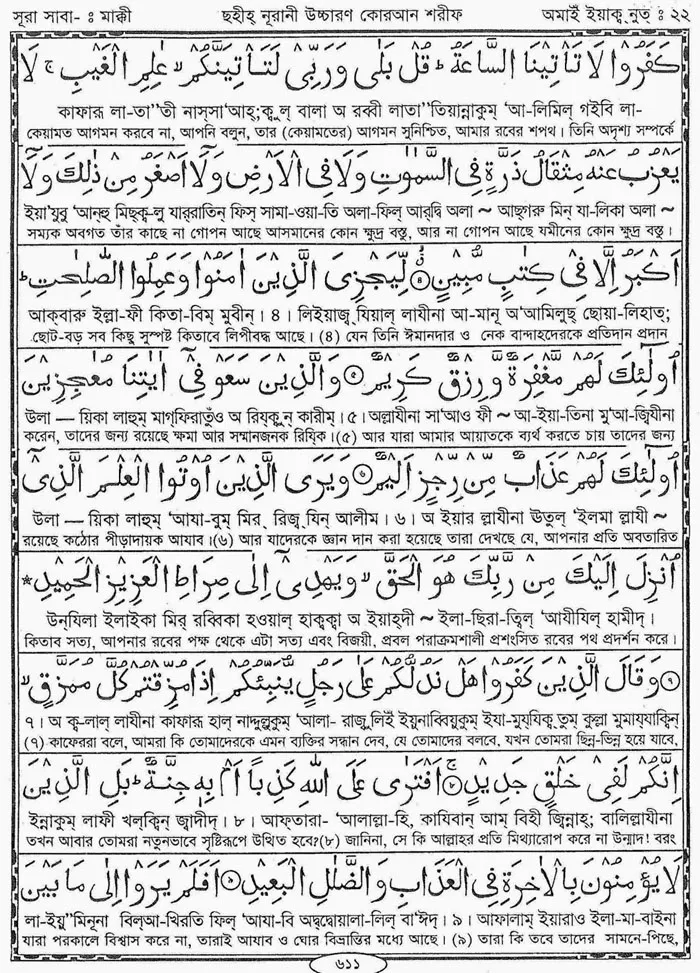 সূরা সাবা- ঃ মাক্কী ছহীহ্ নূরানী উচ্চারণ কোরআন শরীফ অমাইঁ ইয়াক্ব্ নুত্ ঃ ২২
كَفَرُوْا لَا تَاْتِيْنَا السَّاعَةُ ؕ قُلْ بَلٰى وَرَبِّىْ لَتَاْتِيَنَّكُمْ ۙ عٰلِمِ الْغَيْبِ ۚ لَا
কাফারূ লা-তা"তী নাস্‌সা'আহ্; ক্বুল্ বালা অ রব্বী লাতা"তিয়ান্নাকুম্ 'আ-লিমিল্ গইবি লা-
কেয়ামত আগমন করবে না, আপনি বলুন, তার (কেয়ামতের) আগমন সুনিশ্চিত, আমার রবের শপথ। তিনি অদৃশ্য সম্পর্কে
يَعْزُبُ عَنْهُ مِثْقَالُ ذَرَّةٍ فِى السَّمٰوٰتِ وَلَا فِى الْاَرْضِ وَلَآ اَصْغَرُ مِنْ ذٰلِكَ وَلَآ
ইয়া'যুবু 'আন্‌হু মিছ্‌ক্ব-লু যার্‌রাতিন্ ফিস্ সামা-ওয়া-তি অলা-ফিল্ আর্‌দ্বি অলা ~ আছ্‌গরু মিন্ যা-লিকা অলা ~
সম্যক অবগত তাঁর কাছে না গোপন আছে আসমানের কোন ক্ষুদ্র বস্তু, আর না গোপন আছে যমীনের কোন ক্ষুদ্র বস্তু।
اَكْبَرُ اِلَّا فِىْ كِتٰبٍ مُّبِيْنٍ ۙ لِّيَجْزِىَ الَّذِيْنَ اٰمَنُوْا وَعَمِلُوا الصّٰلِحٰتِ ؕ
আক্‌বারু ইল্লা-ফী কিতা-বিম্ মুবীন্। ৪। লিইয়াজ্ব্‌যিয়াল্ লাযীনা আ-মানূ অ'আমিলুছ্ ছোয়া-লিহাত্;
ছোট-বড় সব কিছু সুস্পষ্ট কিতাবে লিপীবদ্ধ আছে। (৪) যেন তিনি ঈমানদার ও নেক বান্দাহদেরকে প্রতিদান প্রদান
اُولٰٓئِكَ لَهُمْ مَّغْفِرَةٌ وَّرِزْقٌ كَرِيْمٌ وَالَّذِيْنَ سَعَوْ فِىْٓ اٰيٰتِنَا مُعٰجِزِيْنَ
উলা — য়িকা লাহুম্ মাগ্‌ফিরাতুঁও অ রিয্‌ক্বুন্ কারীম্। ৫। অল্লাযীনা সা'আও ফী ~ আ-ইয়া-তিনা মু'আ-জ্বিযীনা
করেন, তাদের জন্য রয়েছে ক্ষমা আর সম্মানজনক রিযিক।(৫) আর যারা আমার আয়াতকে ব্যর্থ করতে চায় তাদের জন্য
اُولٰٓئِكَ لَهُمْ عَذَابٌ مِّنْ رِّجْزٍ اَلِيْمٌ وَيَرَى الَّذِيْنَ اُوْتُوا الْعِلْمَ الَّذِىْٓ
উলা — য়িকা লাহুম্ 'আযা-বুম্ মির্ রিজ্ব্‌যিন্ আলীম। ৬। অ ইয়ার ল্লাযীনা উতুল্ 'ইলমা ল্লাযী ~
রয়েছে কঠোর পীড়াদায়ক আযাব।(৬) আর যাদেরকে জ্ঞান দান করা হয়েছে তারা দেখছে যে, আপনার প্রতি অবতারিত
اُنْزِلَ اِلَيْكَ مِنْ رَّبِّكَ هُوَ الْحَقَّ ۙ وَيَهْدِىْٓ اِلٰى صِرَاطِ الْعَزِيْزِ الْحَمِيْدِ *
উন্‌যিলা ইলাইকা মির্ রব্বিকা হওয়াল্ হাক্বক্বা অ ইয়াহ্‌দী ~ ইলা-ছিরা-ত্বিল্ 'আযীযিল্ হামীদ্।
কিতাব সত্য, আপনার রবের পক্ষ থেকে এটা সত্য এবং বিজয়ী, প্রবল পরাক্রমশালী প্রশংসিত রবের পথ প্রদর্শন করে।
وَقَالَ الَّذِيْنَ كَفَرُوْا هَلْ نَدُلُّكُمْ عَلٰى رَجُلٍ يُّنَبِّئُكُمْ اِذَا مُزِّقْتُمْ كُلَّ مُمَزَّقٍ ۙ
৭। অ ক্ব-লাল্ লাযীনা কাফারূ হাল্ নাদুল্লুকুম্ 'আলা- রাজুলিইঁ ইয়ুনাব্বিয়ুকুম্ ইযা-মুয্‌যিক্ব্‌তুম্ কুল্লা মুমায্‌যাক্বিন্
(৭) কাফেররা বলে, আমরা কি তোমাদেরকে এমন ব্যক্তির সন্ধান দেব, যে তোমাদের বলবে, যখন তোমরা ছিন্ন-ভিন্ন হয়ে যাবে,
اِنَّكُمْ لَفِىْ خَلْقٍ جَدِيْدٍ ۚ اَفْتَرٰى عَلَى اللّٰهِ كَذِبًا اَمْ بِهٖ جِنَّةٌ ؕ بَلِ الَّذِيْنَ
ইন্নাকুম্ লাফী খল্‌ক্বিন্ জ্বাদীদ্। ৮। আফ্‌তারা- 'আলাল্লা-হি, কাযিবান্ আম্ বিহী জ্বিন্নাহ্; বালিল্লাযীনা
তখন আবার তোমরা নতুনভাবে সৃষ্টিরূপে উত্থিত হবে?(৮) জানিনা, সে কি আল্লাহর প্রতি মিথ্যারোপ করে না উন্মাদ! বরং
لَا يُؤْمِنُوْنَ بِالْاٰخِرَةِ فِى الْعَذَابِ وَالضَّلٰلِ الْبَعِيْدِ اَفَلَمْ يَرَوْا اِلٰى مَا بَيْنَ
লা-ইয়ু"মিনূনা বিল্‌আ-খিরতি ফিল্ 'আযা-বি অদ্দ্বোয়ালা-লিল্ বা'ঈদ্। ৯। আফালাম্ ইয়ারাও ইলা-মা-বাইনা
যারা পরকালে বিশ্বাস করে না, তারাই আযাব ও ঘোর বিভ্রান্তির মধ্যে আছে। (৯) তারা কি তবে তাদের সামনে-পিছে,
৬১১